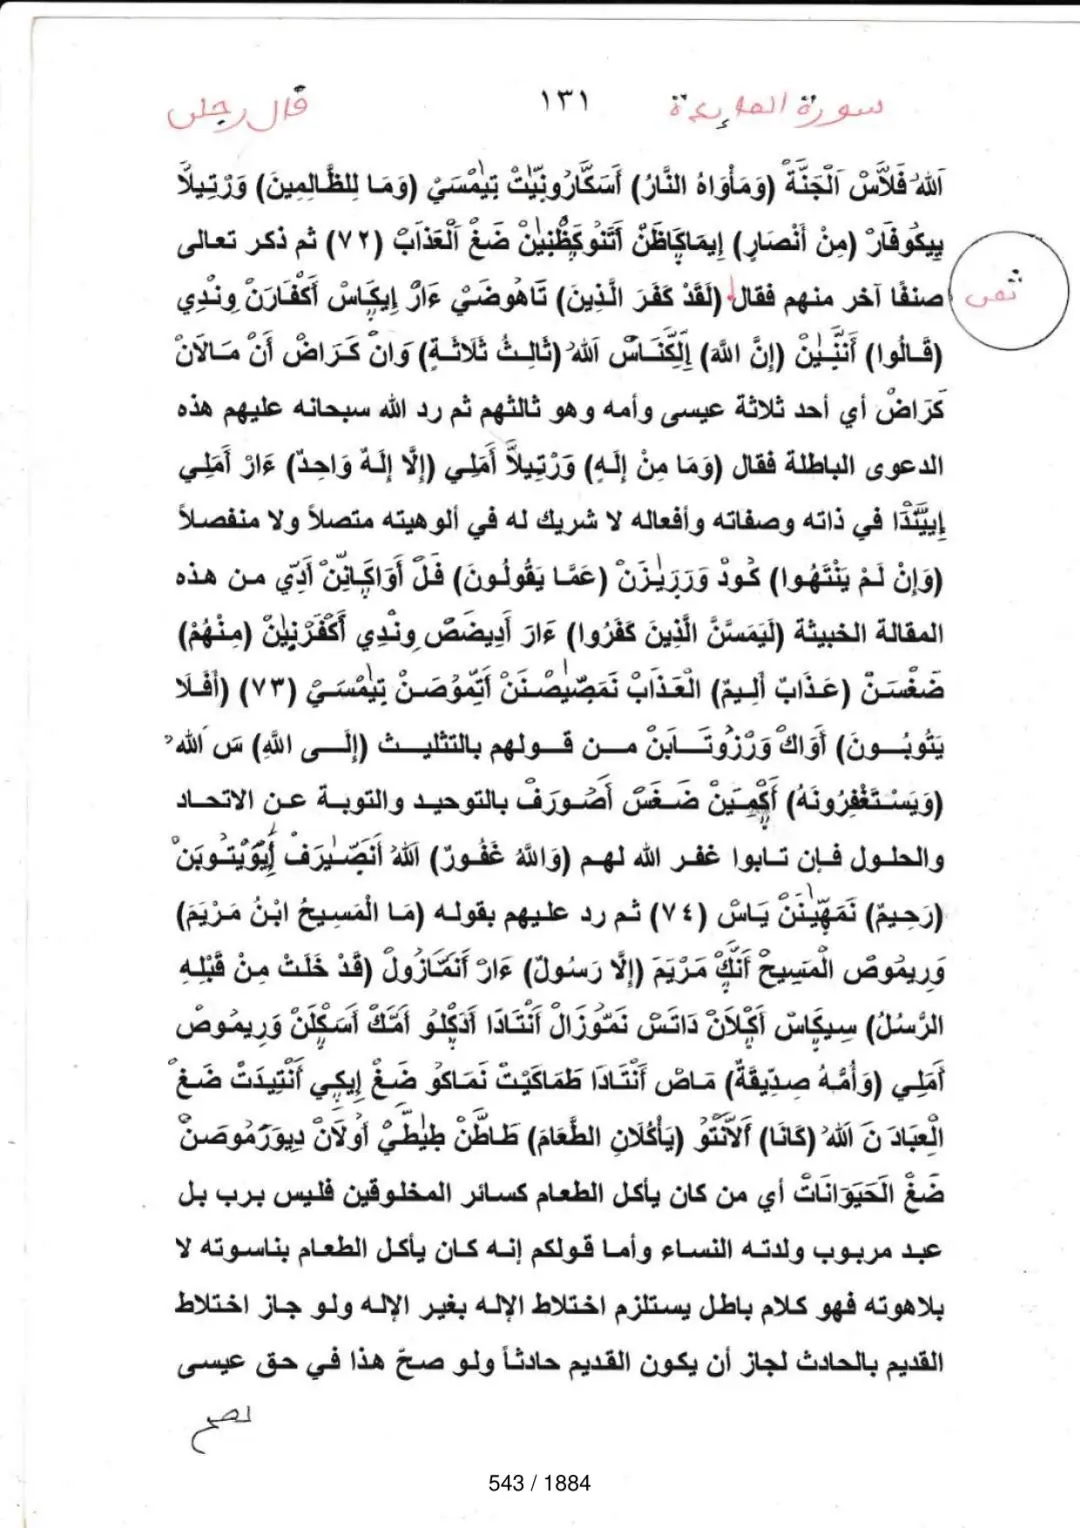 سورة المائدة ١٣١ قال رجلن
اَللهُ فَلَاسْ اَلْجَنَّةْ (وَمَأْوَاهُ النَّارُ) أَسَكَّارُونِيّٰتْ تِيٰمْسَيْ (وَمَا لِلظَّالِمِينَ) وَرْتِيلَّا
يِيكُوفَارْ (مِنْ أَنْصَارٍ) إِيمَاكَاظَنْ أَتَنُوكَظْنِينْ ضَغْ اَلْعَذَابْ (٧٢) ثم ذكر تعالى
صنفًا آخر منهم فقال (لَقَدْ كَفَرَ الَّذِينَ) تَاهُوضَيْ ءَارْ إِيكَاسْ أَكْفَارَنْ وِنْدِي
ثمن
(قَالُوا) أَنَّيٰنْ (إِنَّ اللهَ) إِلْكَنَاسْ اَللهُ (ثَالِثُ ثَلَاثَةٍ) وَانْ كَرَاضْ أَنْ مَالَانْ
كَرَاضْ أي أحد ثلاثة عيسى وأمه وهو ثالثهم ثم رد الله سبحانه عليهم هذه
الدعوى الباطلة فقال (وَمَا مِنْ إِلَهٍ) وَرْتِيلَّا أَمَلِي (إِلَّا إِلَهٌ وَاحِدٌ) ءَارْ أَمَلِي
إِييَّنْدَا في ذاته وصفاته وأفعاله لا شريك له في ألوهيته متصلاً ولا منفصلاً
(وَإِنْ لَمْ يَنْتَهُوا) كُودْ وَرَرِيٰزَنْ (عَمَّا يَقُولُونَ) فَلْ أَوَاكَانِّنْ أَدِّي من هذه
المقالة الخبيثة (لَيَمَسَّنَّ الَّذِينَ كَفَرُوا) ءَارَ أَدِيضَصْ وِنْدِي أَكْفَرْنِيٰنْ (مِنْهُمْ)
ضَغْسَنْ (عَذَابٌ أَلِيمٌ) الْعَذَابْ نَمَصِّيٰصْنَنْ أَتِمُّوصَنْ تِيٰمْسَيْ (٧٣) (أَفَلَا
يَتُوبُونَ) أَوَاكْ وَرْزُوتَابَنْ من قولهم بالتثليث (إِلَى اللهِ) سَ اَللهُ
(وَيَسْتَغْفِرُونَهُ) أَكْمِيَنْ ضَغَسْ أَصُورَفْ بالتوحيد والتوبة عن الاتحاد
والحلول فإن تابوا غفر الله لهم (وَاللهُ غَفُورٌ) اَللهُ أَنَصِّيرَفْ إِيوَيْتُوبَنْ
(رَحِيمٌ) نَمَهِّيٰنَنْ يَاسْ (٧٤) ثم رد عليهم بقوله (مَا الْمَسِيحُ ابْنُ مَرْيَمَ)
وَرِيمُوصْ الْمَسِيحْ أَنَّكْ مَرْيَمَ (إِلَّا رَسُولٌ) ءَارْ أَنَمَّازُولْ (قَدْ خَلَتْ مِنْ قَبْلِهِ
الرُّسُلُ) سِيكَاسْ أَكْلَانْ دَاتَسْ نَمُّوزَالْ أَنْتَادَا أَدَكْلُو أَمَّكْ أَسَكْلَنْ وَرِيمُوصْ
أَمَلِي (وَأُمُّهُ صِدِّيقَةٌ) مَاصْ أَنْتَادَا طَمَاكَيْتْ نَمَاكُو ضَغْ إِيكِي أَنْتِيدَتْ ضَغْ
الْعِبَادَ نَ اَللهُ (كَانَا) اَلَّانْتُو (يَأْكُلَانِ الطَّعَامَ) طَاطَّنْ طِيطَّيْ أَوْلَانْ دِيوَرْمُوصَنْ
ضَغْ الْحَيَوَانَاتْ أي من كان يأكل الطعام كسائر المخلوقين فليس برب بل
عبد مربوب ولدته النساء وأما قولكم إنه كان يأكل الطعام بناسوته لا
بلاهوته فهو كلام باطل يستلزم اختلاط الإله بغير الإله ولو جاز اختلاط
القديم بالحادث لجاز أن يكون القديم حادثاً ولو صحّ هذا في حق عيسى
لصح
543 / 1884